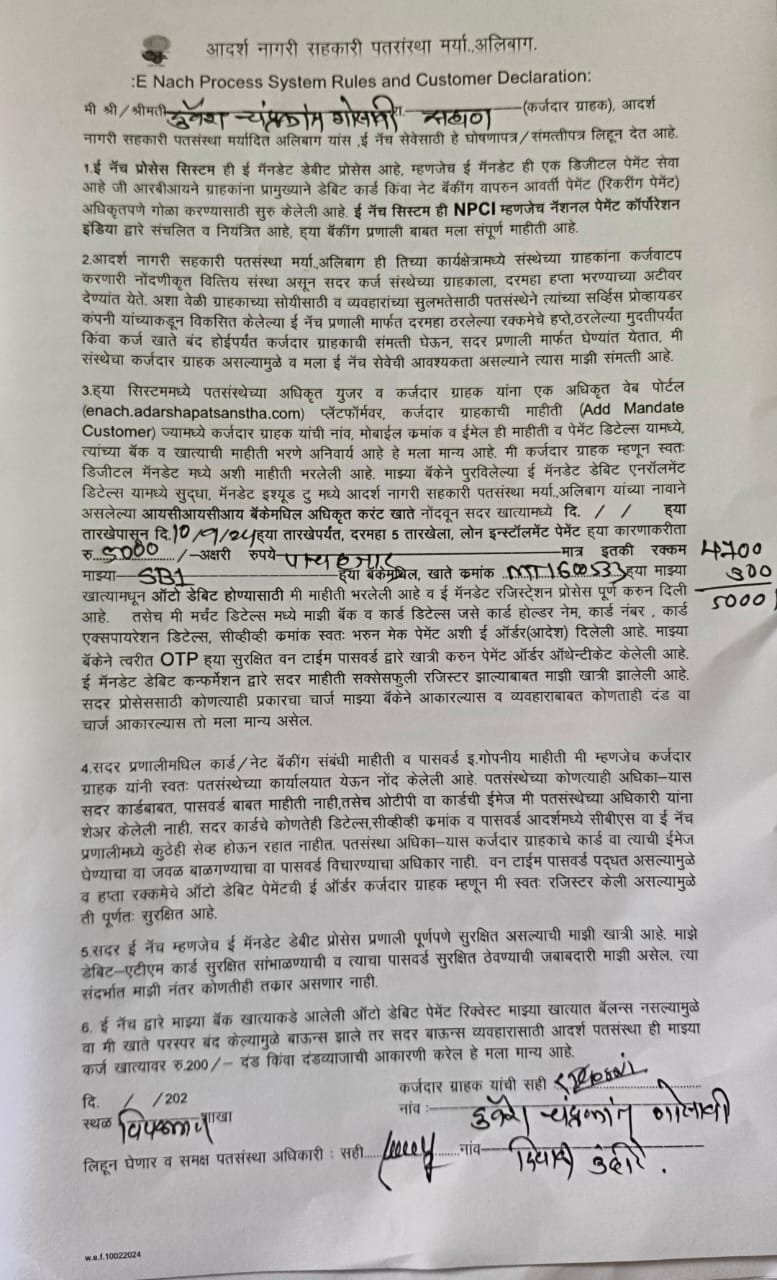 आदर्श नागरी सहकारी पतसंस्था मर्या.,अलिबाग.
:E Nach Process System Rules and Customer Declaration:
मी श्री/श्रीमती चंद्रकांत गोसावी रा. (कर्जदार ग्राहक), आदर्श
नागरी सहकारी पतसंस्था मर्यादित अलिबाग यांस ,ई नॅच सेवेसाठी हे घोषणापत्र/संमत्तीपत्र लिहून देत आहे.
1.ई नॅच प्रोसेस सिस्टिम ही ई मॅनडेट डेबीट प्रोसेस आहे, म्हणजेच ई मॅनडेट ही एक डिजीटल पेमेंट सेवा
आहे जी आरबीआयने ग्राहकांना प्रामुख्याने डेबिट कार्ड किंवा नेट बॅकींग वापरुन आवर्ती पेमेंट (रिकरींग पेमेंट)
अधिकृतपणे गोळा करण्यासाठी सुरु केलेली आहे. ई नॅच सिस्टिम ही NPCI म्हणजेच नॅशनल पेमेंट कॉर्पोरेशन
इंडिया द्वारे संचलित व नियंत्रित आहे, ह्या बॅकींग प्रणाली बाबत मला संपूर्ण माहीती आहे.
2.आदर्श नागरी सहकारी पतसंस्था मर्या.,अलिबाग ही तिच्या कार्यक्षेत्रामध्ये संस्थेच्या ग्राहकांना कर्जवाटप
करणारी नोंदणीकृत वित्तिय संस्था असून सदर कर्ज संस्थेच्या ग्राहकाला, दरमहा हप्ता भरण्याच्या अटीवर
देण्यांत येते. अशा वेळी ग्राहकाच्या सोयीसाठी व व्यवहारांच्या सुलभतेसाठी पतसंस्थेने त्यांच्या सर्व्हिस प्रोव्हायडर
कंपनी यांच्याकडून विकसित केलेल्या ई नॅच प्रणाली मार्फत दरमहा ठरलेल्या रक्कमेचे हप्ते,ठरलेल्या मुदतीपर्यंत
किंवा कर्ज खाते बंद होईपर्यंत कर्जदार ग्राहकाची संमत्ती घेऊन, सदर प्रणाली मार्फत घेण्यांत येतात, मी
संस्थेचा कर्जदार ग्राहक असल्यामुळे व मला ई नॅच सेवेची आवश्यकता असल्याने त्यास माझी संमत्ती आहे.
3.ह्या सिस्टिममध्ये पतसंस्थेच्या अधिकृत युजर व कर्जदार ग्राहक यांना एक अधिकृत वेब पोर्टल
(enach.adarshapatsanstha.com) प्लॅटफॉर्मवर, कर्जदार ग्राहकाची माहीती (Add Mandate
Customer) ज्यामध्ये कर्जदार ग्राहक यांची नांव, मोबाईल क्रमांक व ईमेल ही माहीती व पेमेंट डिटेल्स यामध्ये,
त्यांच्या बॅक व खात्याची माहीती भरणे अनिवार्य आहे हे मला मान्य आहे. मी कर्जदार ग्राहक म्हणून स्वतः
डिजीटल मॅनडेट मध्ये अशी माहीती भरलेली आहे. माझ्या बॅकेने पुरविलेल्या ई मॅनडेट डेबिट एनरॉलमेंट
डिटेल्स यामध्ये सुद्धा, मॅनडेट इश्यूड टु मध्ये आदर्श नागरी सहकारी पतसंस्था मर्या.,अलिबाग यांच्या नावाने
असलेल्या आयसीआयसीआय बॅकेमधिल अधिकृत करंट खाते नोंदवून सदर खात्यामध्ये दि. / / ह्या
तारखेपासून दि.10/9/24ह्या तारखेपर्यंत, दरमहा 5 तारखेला, लोन इन्स्टॉलमेंट पेमेंट ह्या कारणाकरीता
रु.5000/-अक्षरी रुपये पाच हजार मात्र इतकी रक्कम 4700
माझ्या SBI ह्या बॅकेमधिल, खाते क्रमांक ह्या माझ्या 300
खात्यामधून ऑटो डेबिट होण्यासाठी मी माहीती भरलेली आहे व ई मॅनडेट रजिस्ट्रेशन प्रोसेस पूर्ण करुन दिली 5000
आहे. तसेच मी मर्चंट डिटेल्स मध्ये माझी बॅक व कार्ड डिटेल्स जसे कार्ड होल्डर नेम, कार्ड नंबर , कार्ड
एक्सपायरेशन डिटेल्स, सीव्हीव्ही क्रमांक स्वतः भरुन मेक पेमेंट अशी ई ऑर्डर(आदेश) दिलेली आहे. माझ्या
बॅकेने त्वरीत OTP ह्या सुरक्षित वन टाईम पासवर्ड द्वारे खात्री करुन पेमेंट ऑर्डर ऑथेन्टीकेट केलेली आहे.
ई मॅनडेट डेबिट कन्फर्मेशन द्वारे सदर माहीती सक्सेसफुली रजिस्टर झाल्याबाबत माझी खात्री झालेली आहे.
सदर प्रोसेससाठी कोणत्याही प्रकारचा चार्ज माझ्या बॅकेने आकारल्यास व व्यवहाराबाबत कोणताही दंड वा
चार्ज आकारल्यास तो मला मान्य असेल.
4.सदर प्रणालीमधिल कार्ड/नेट बॅकींग संबंधी माहीती व पासवर्ड इ.गोपनीय माहीती मी म्हणजेच कर्जदार
ग्राहक यांनी स्वतः पतसंस्थेच्या कार्यालयात येऊन नोंद केलेली आहे. पतसंस्थेच्या कोणत्याही अधिका–यास
सदर कार्डबाबत, पासवर्ड बाबत माहीती नाही,तसेच ओटीपी वा कार्डची ईमेज मी पतसंस्थेच्या अधिकारी यांना
शेअर केलेली नाही, सदर कार्डचे कोणतेही डिटेल्स,सीव्हीव्ही क्रमांक व पासवर्ड आदर्शमध्ये सीबीएस वा ई नॅच
प्रणालीमध्ये कुठेही सेव्ह होऊन रहात नाहीत. पतसंस्था अधिका–यास कर्जदार ग्राहकाचे कार्ड वा त्याची ईमेज
घेण्याचा वा जवळ बाळगण्याचा वा पासवर्ड विचारण्याचा अधिकार नाही. वन टाईम पासवर्ड पद्धत असल्यामुळे
व हप्ता रक्कमेचे ऑटो डेबिट पेमेंटची ई ऑर्डर कर्जदार ग्राहक म्हणून मी स्वतः रजिस्टर केली असल्यामुळे
ती पूर्णतः सुरक्षित आहे.
5.सदर ई नॅच म्हणजेच ई मॅनडेट डेबीट प्रोसेस प्रणाली पूर्णपणे सुरक्षित असल्याची माझी खात्री आहे. माझे
डेबिट–एटीएम कार्ड सुरक्षित सांभाळण्याची व त्याचा पासवर्ड सुरक्षित ठेवण्याची जबाबदारी माझी असेल, त्या
संदर्भात माझी नंतर कोणतीही तक्रार असणार नाही.
6. ई नॅच द्वारे माझ्या बॅक खात्याकडे आलेली ऑटो डेबिट पेमेंट रिक्वेस्ट माझ्या खात्यात बॅलन्स नसल्यामुळे
वा मी खाते परस्पर बंद केल्यामुळे बाऊन्स झाले तर सदर बाऊन्स व्यवहारासाठी आदर्श पतसंस्था ही माझ्या
कर्ज खात्यावर रु.200/– दंड किंवा दंडव्याजाची आकारणी करेल हे मला मान्य आहे.
दि. / /202 कर्जदार ग्राहक यांची सही
स्थळ शाखा नांव :- चंद्रकांत गोसावी
लिहून घेणार व समक्ष पतसंस्था अधिकारी : सही नांव
w.e.f.10022024